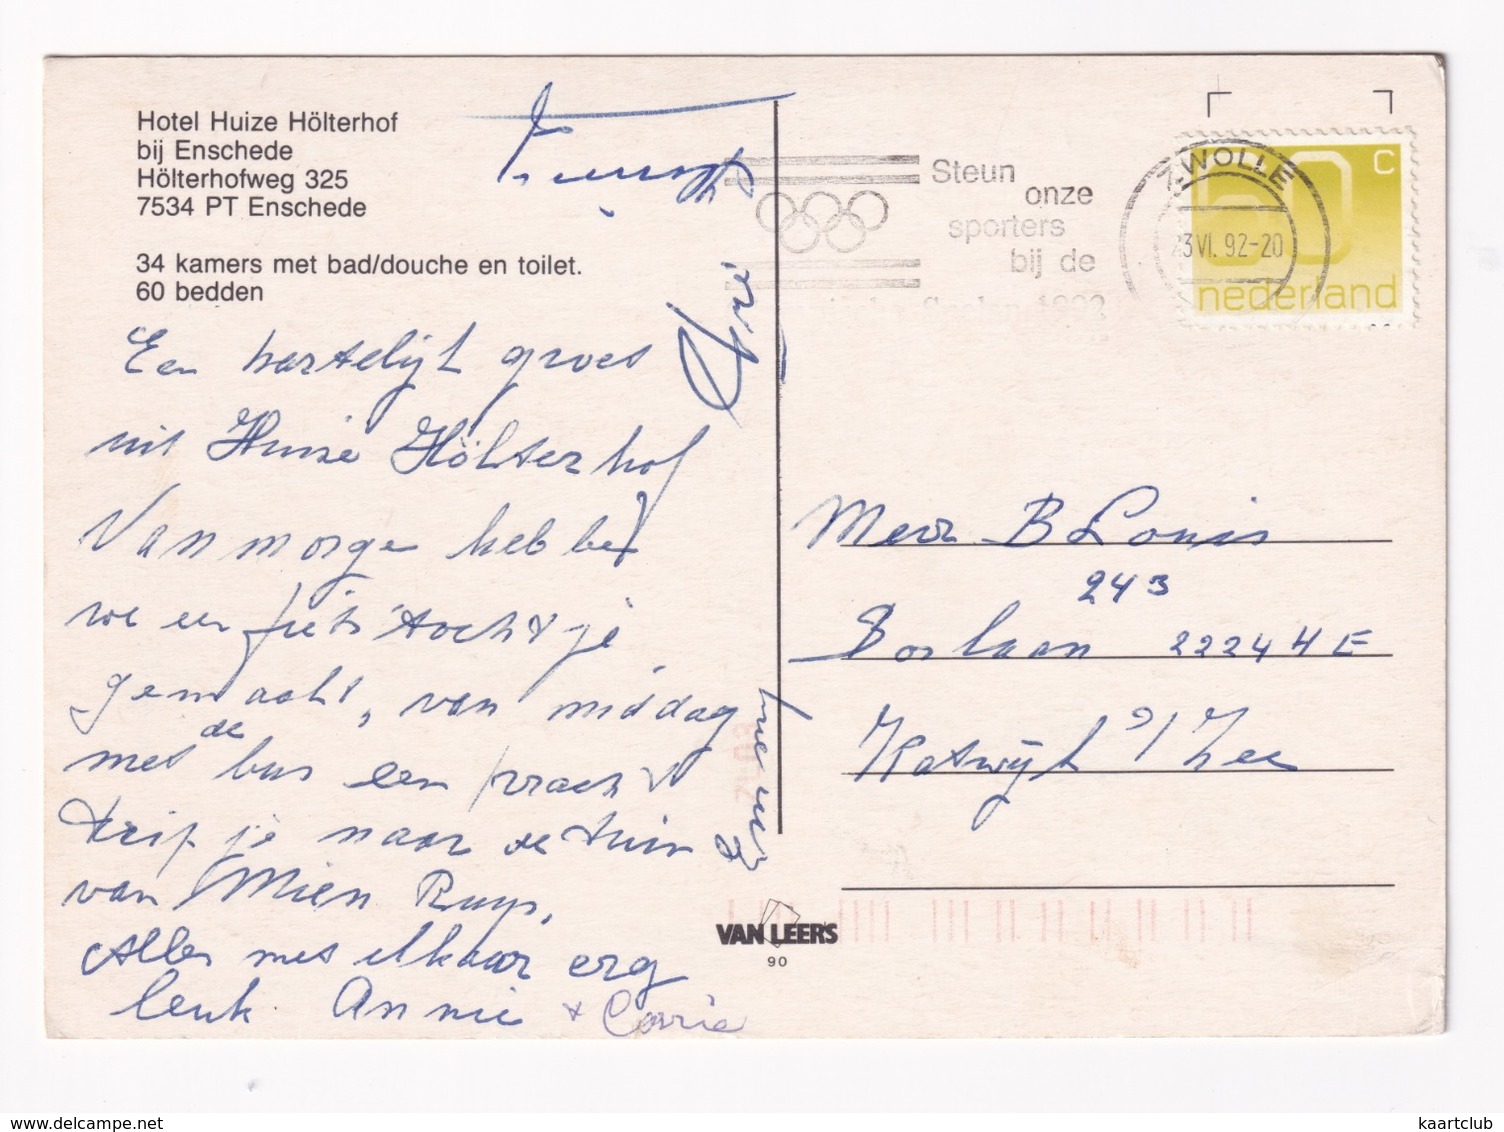 Hotel Huize Hölterhof
bij Enschede
Hölterhofweg 325
7534 PT Enschede
34 kamers met bad/douche en toilet.
60 bedden
Een hartelijk groet
uit Huize Hölterhof
Van morge hebbe
we een fiets tochtje
gemaakt, van middag
met de bus een pracht
tripje naar de tuin
van Mien Ruys.
Alles met elkaar erg
leuk Annie + Corrie
Steun
onze
sporters
bij de
Spelen 1992
ZWOLLE
23 VI. 92-20
60 c
nederland
Mevr B Louis
243
Boslaan 2224 HE
Katwijk a/Zee
VAN LEER'S
90
www.delcampe.net
kaartclub